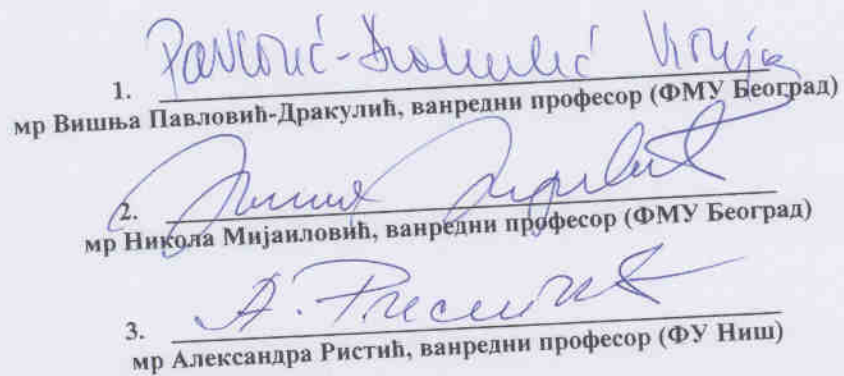 Павловић-Дракулић Вишња
1.
мр Вишња Павловић-Дракулић, ванредни професор (ФМУ Београд)
2.
мр Никола Мијаиловић, ванредни професор (ФМУ Београд)
А. Ристић
3.
мр Александра Ристић, ванредни професор (ФУ Ниш)